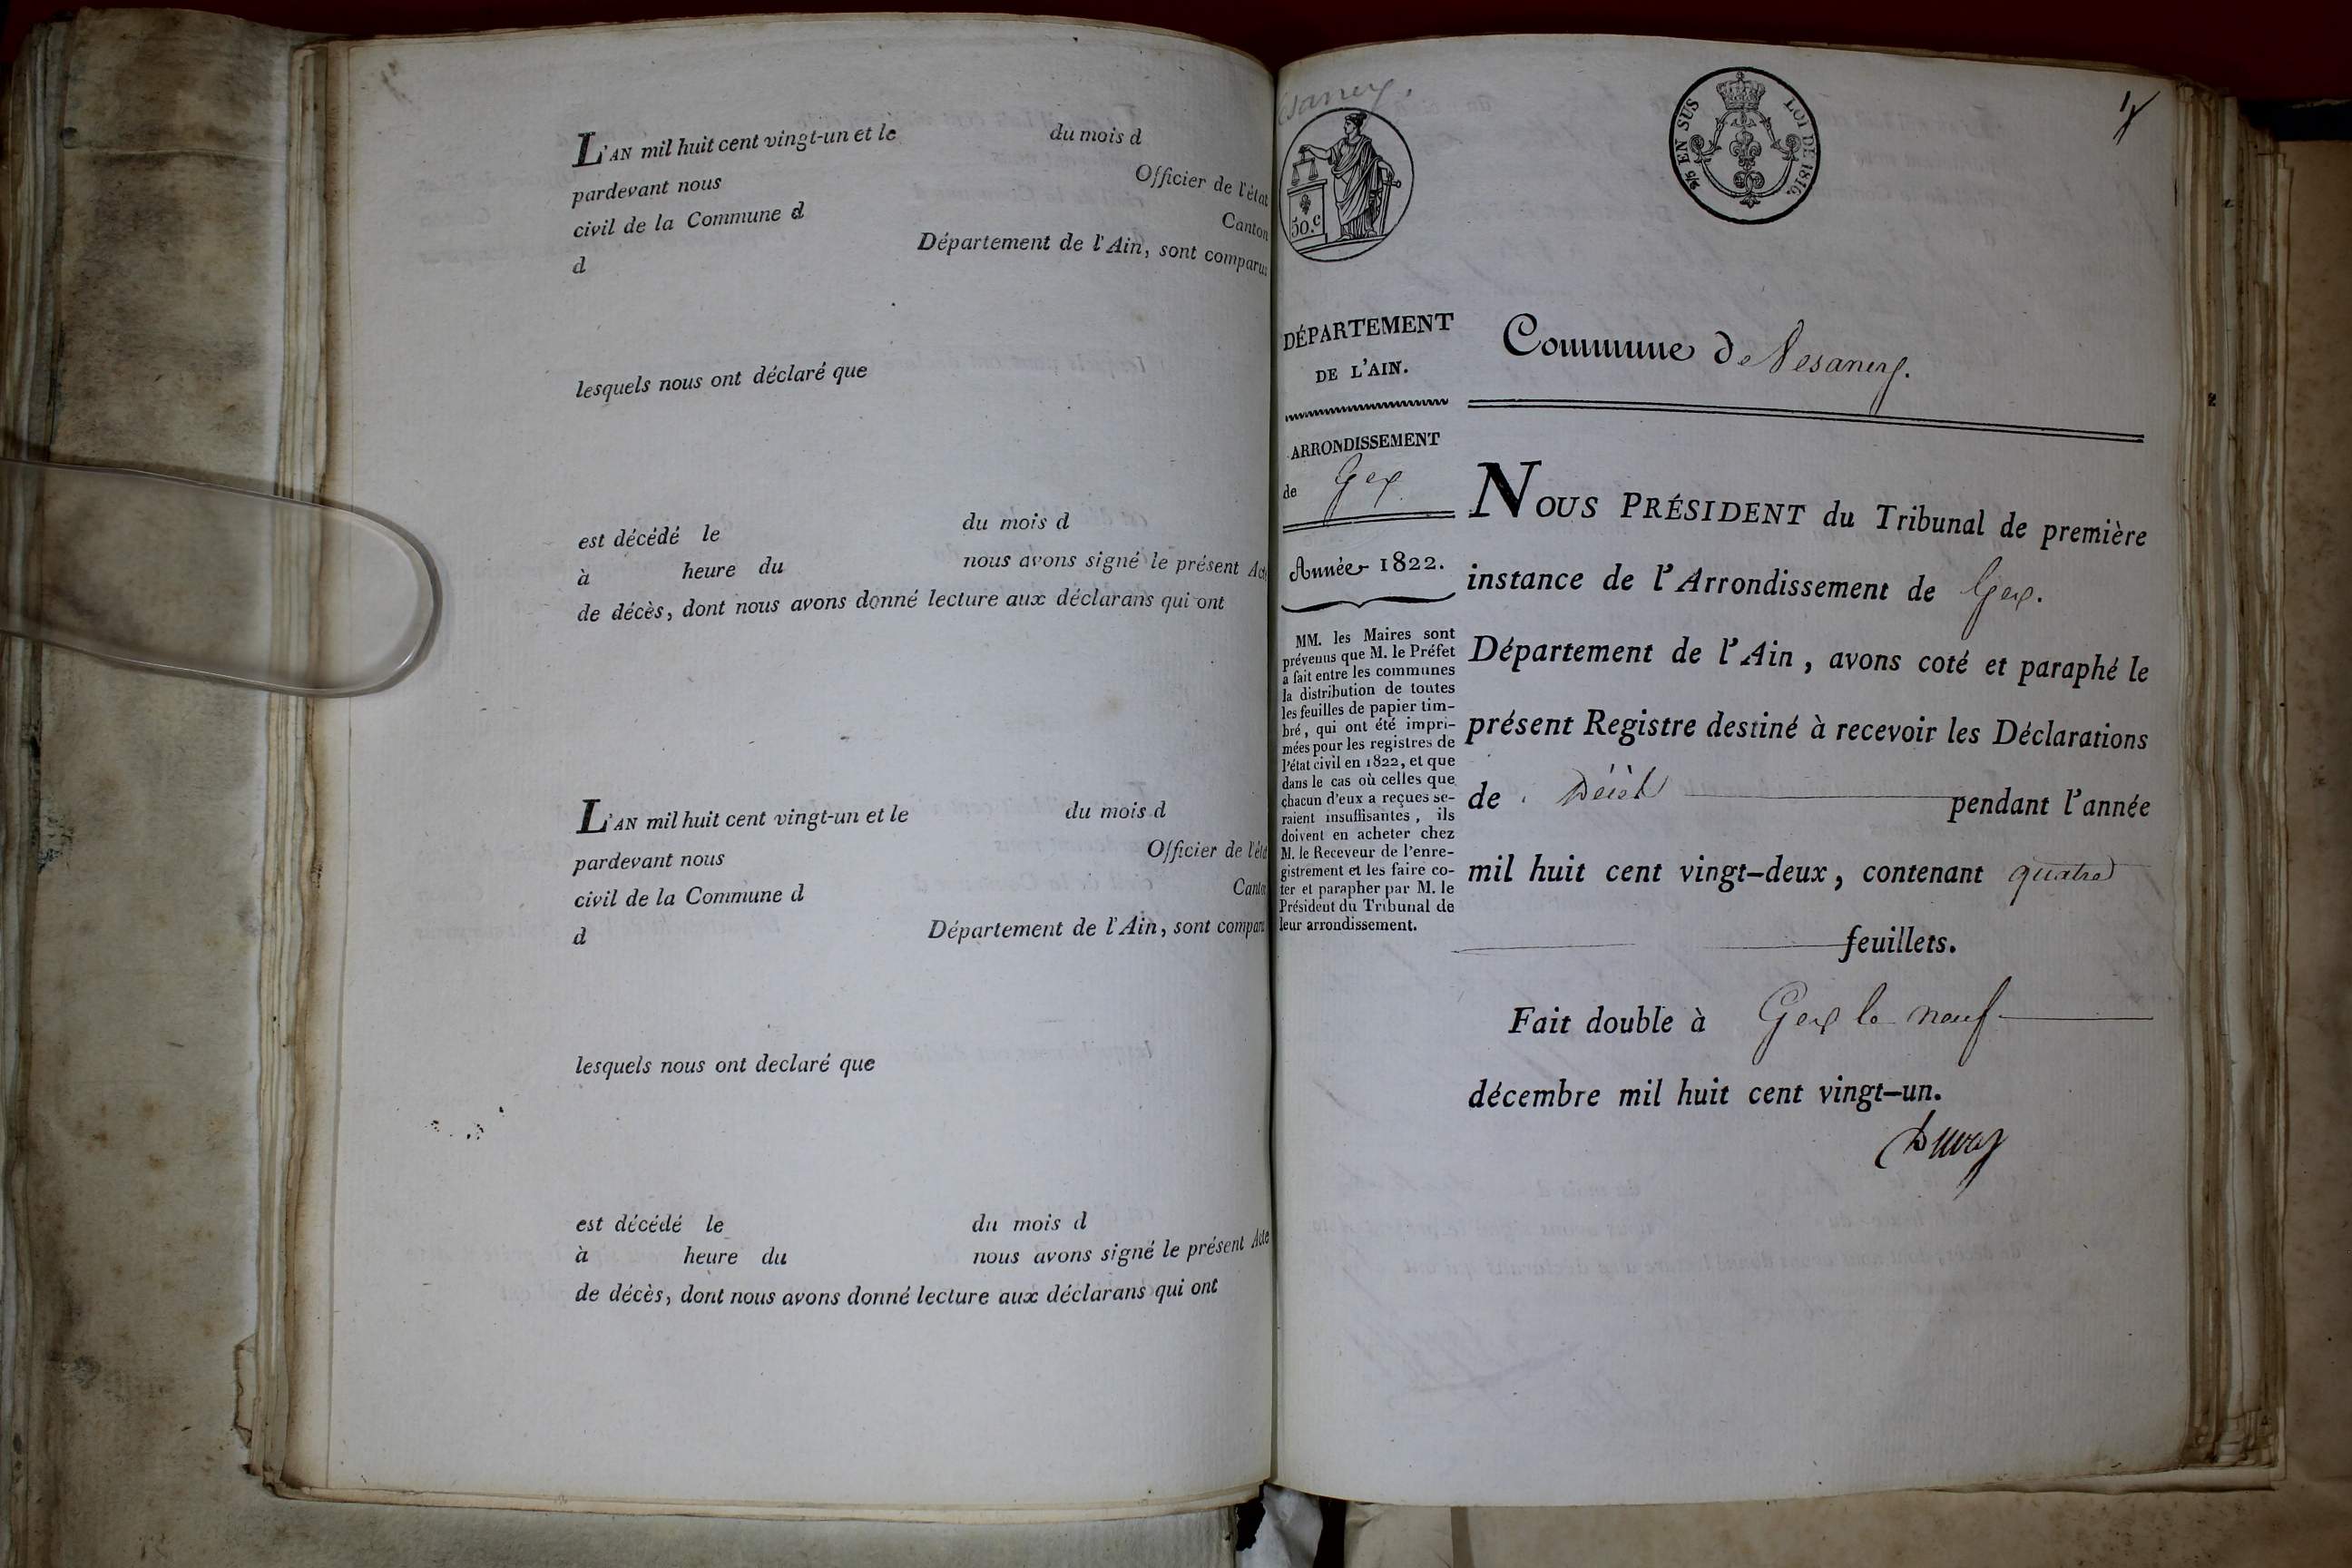 L'AN mil huit cent vingt-un et le du mois d
pardevant nous Officier de l'état
civil de la Commune d Canton
d Département de l'Ain, sont comparus
lesquels nous ont déclaré que
est décédé le du mois d
à heure du nous avons signé le présent Acte
de décès, dont nous avons donné lecture aux déclarans qui ont
L'AN mil huit cent vingt-un et le du mois d
pardevant nous Officier de l'éta
civil de la Commune d Canto
d Département de l'Ain, sont compar
lesquels nous ont declaré que
est décédé le du mois d
à heure du nous avons signé le présent Acte
de décès, dont nous avons donné lecture aux déclarans qui ont
50.c
2/5 EN SUS LOI DE 1816.
DÉPARTEMENT
DE L'AIN.
ARRONDISSEMENT
de Gex
Année 1822.
MM. les Maires sont
prévenus que M. le Préfet
a fait entre les communes
la distribution de toutes
les feuilles de papier tim-
bré, qui ont été impri-
mées pour les registres de
l'état civil en 1822, et que
dans le cas où celles que
chacun d'eux a reçues se-
raient insuffisantes, ils
doivent en acheter chez
M. le Receveur de l'enre-
gistrement et les faire co-
ter et parapher par M. le
Président du Tribunal de
leur arrondissement.
Commune de Vesancy.
NOUS PRÉSIDENT du Tribunal de première
instance de l'Arrondissement de Gex.
Département de l'Ain, avons coté et paraphé le
présent Registre destiné à recevoir les Déclarations
de Décès pendant l'année
mil huit cent vingt-deux, contenant quatre
feuillets.
Fait double à Gex le neuf
décembre mil huit cent vingt-un.